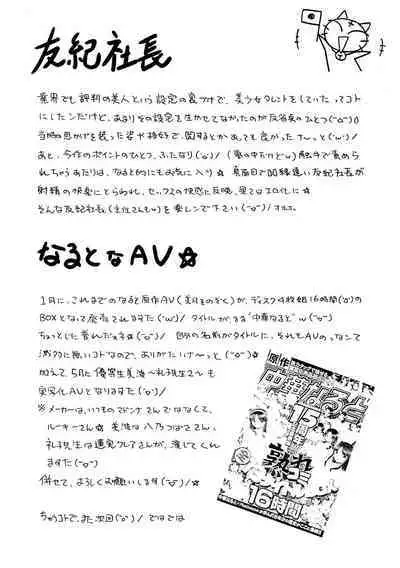 友紀社長
業界でも評判の美人という設定の裏づけで、美少女タレントをしていたってコト
にしたンだけど、あまりその設定を生かせてなかったのが反省点のひとつ
当時の 姿や格好で、 とかあっても良かったナ〜っと('ω')/
あと、今作のポイントのひとつ、ふたなり('ω')/ (夢の中だけどω) 触手で責めら
れちゃうあたりは、なると的にもお気に入り☆ 真面目で 友紀社長が
射精の快楽にとらわれ、セックスの快感に反映、果てはエロ化に☆
そんな友紀社長(主任さんもω)を楽しンで下さい(^o^)/
なるとなAV☆
1月に、これまでのなると原作AV( をのぞく)が、ディスク4枚組16時間('o')の
BOXとなって発売されますた('ω')/ タイトルが、まま"中華なると"ω
ちょっとした夢だょネ☆ 自分の名前がタイトルに、それもAVのってなンて
滅多に無いコトなので、ありがたいナ〜っと☆
加えて、5月に優等生美 〜礼子先生2〜も
実写化AVとなりますた('o')/
※メーカーは、いつものマドンナさんではなくて、
ルーキーさん☆ 美 は八乃つばささん、
礼子先生は蓮実クレアさんが、演じてくれ
ますた
併せて、よろしくお願いします /☆
ちゅうコトで、また次回('o')/ ではでは
原作
中華なると
15周年
熟れ
16時間